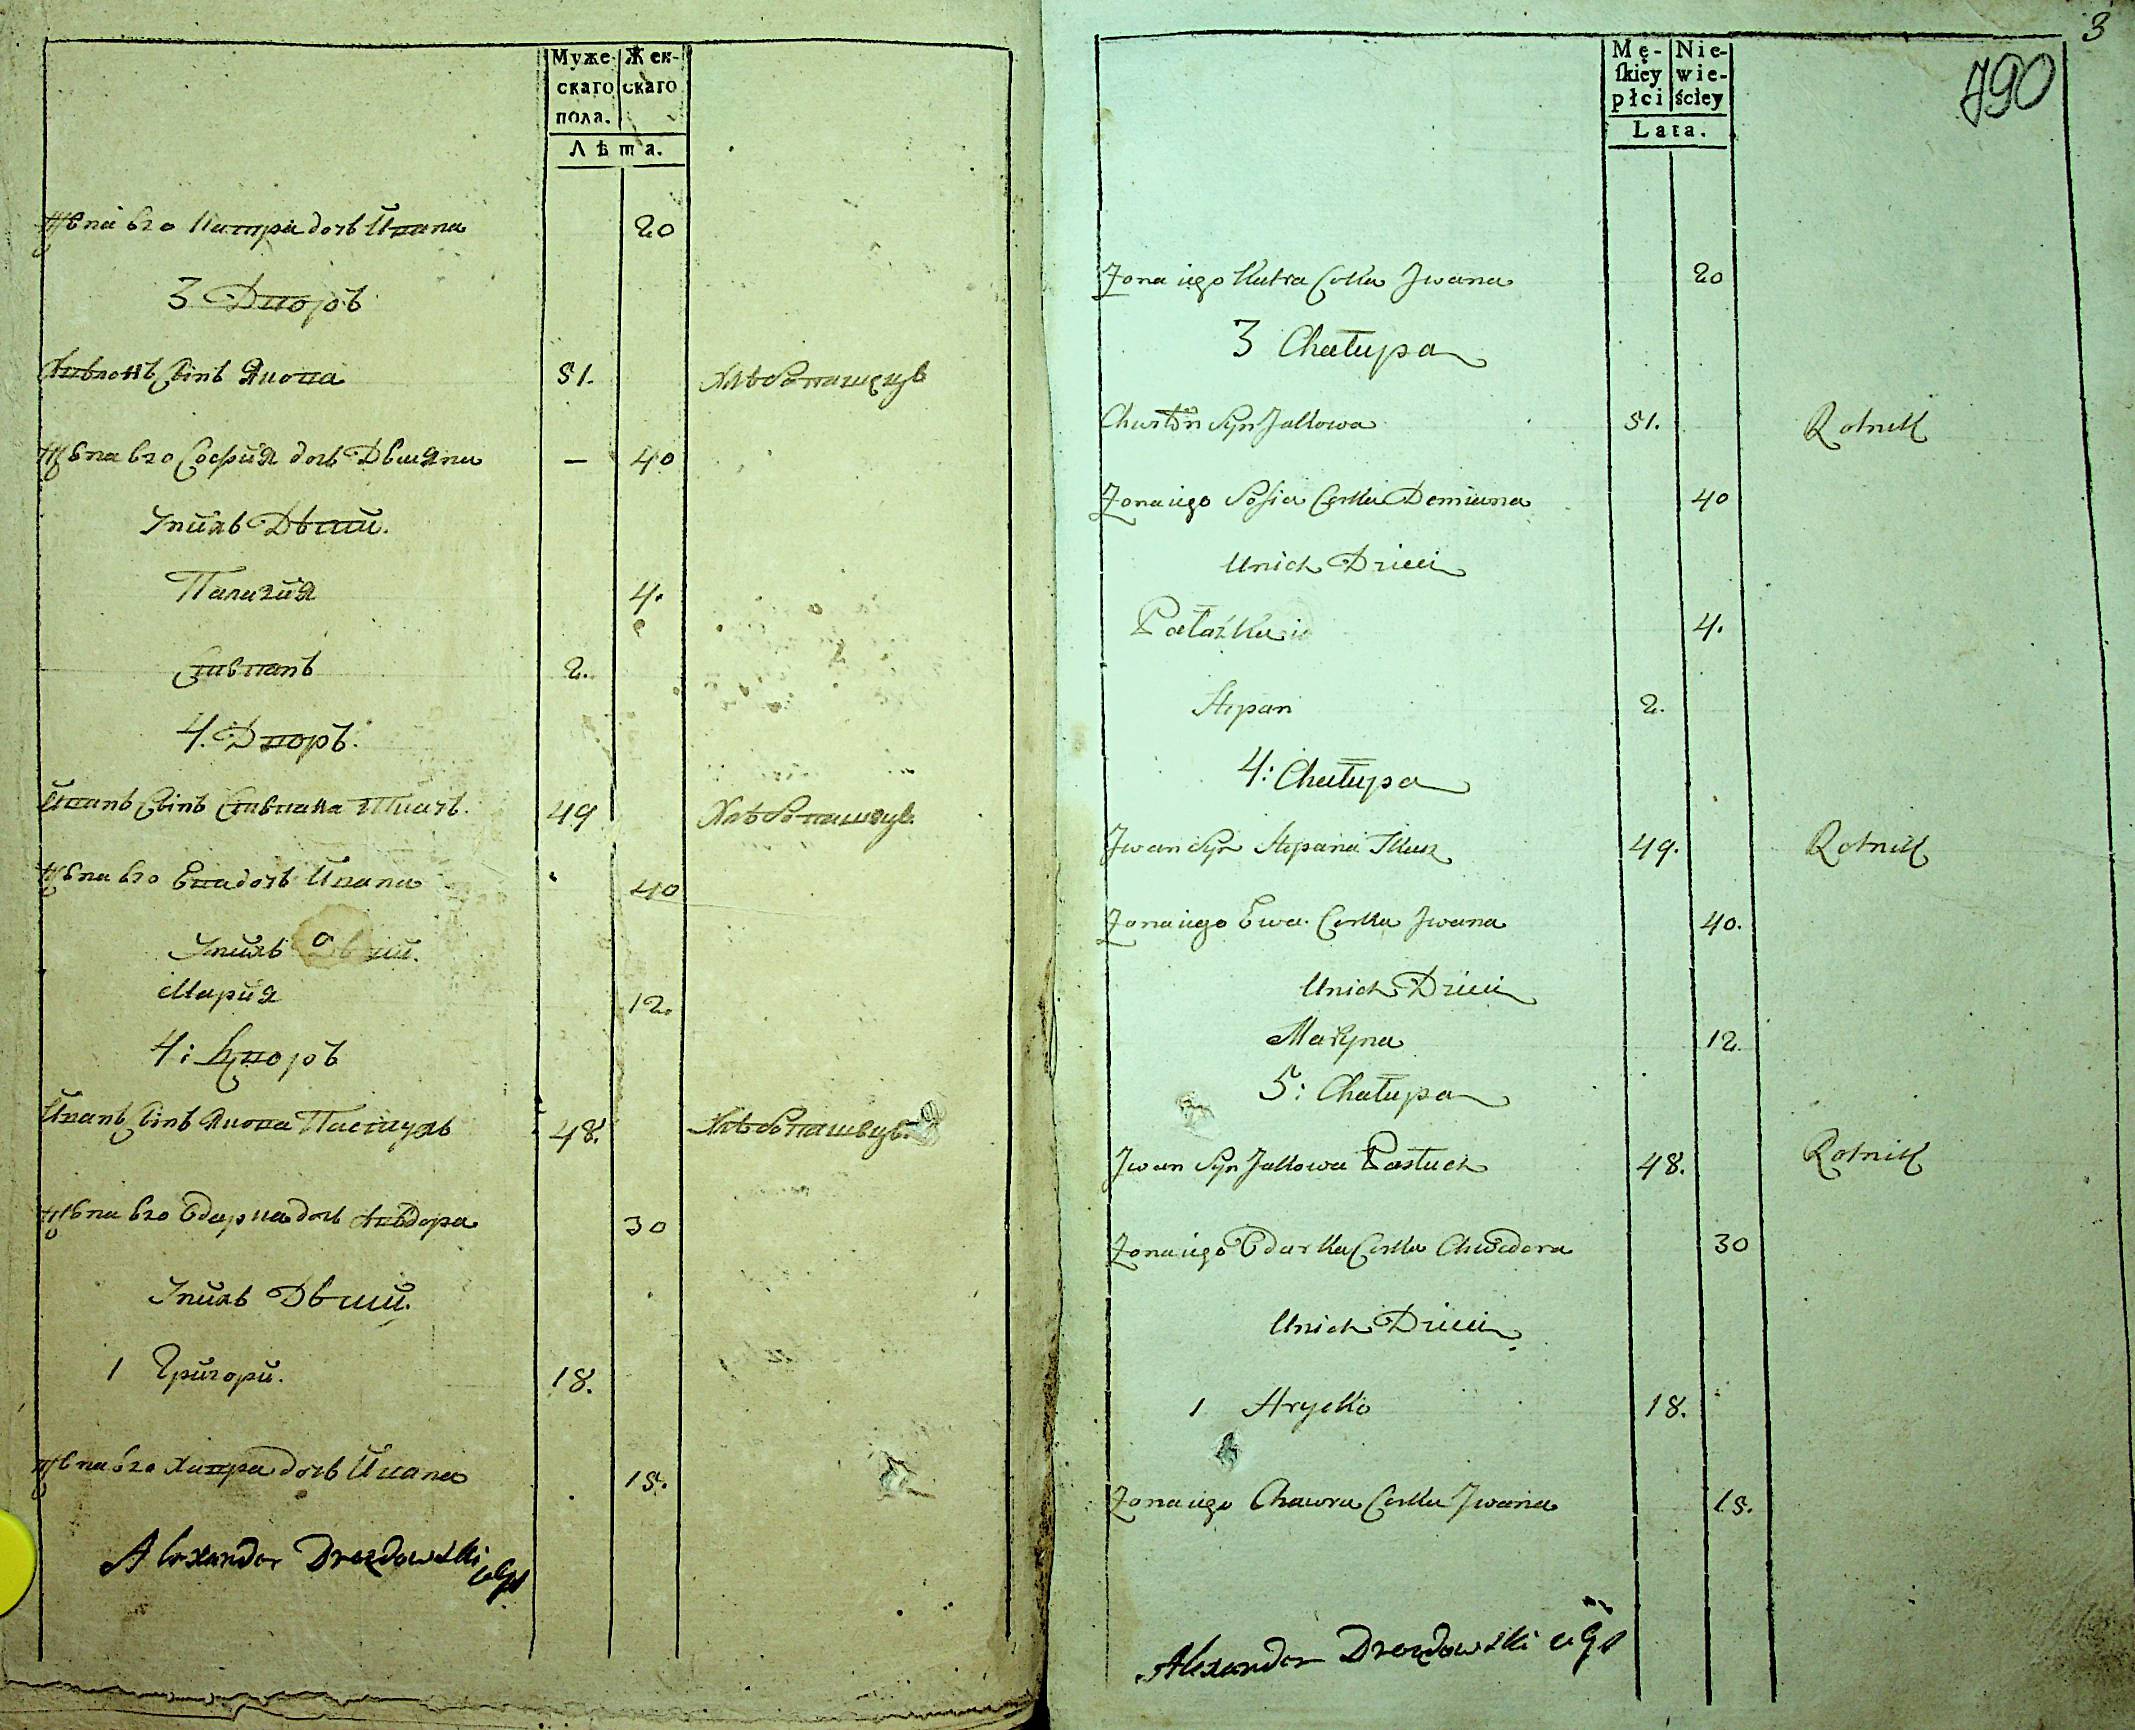 Муже-
скаго
пола.
Жен-
скаго
Лѣта.
Жена его Катра дочь Ивана 20
3 Дворъ
сынъ Якова 51. Хлебопашецъ
Жена его София дочь Демяна — 40
У них Дети.
Палагия 4.
Степанъ 2.
4. Дворъ.
Иванъ сынъ Степана Ткачъ. 49 Хлебопашецъ
Жена его Ева дочь Ивана 40
У них Дети.
Мария 12.
4: Дворъ
Иванъ сынъ Якова Пастухъ 48. Хлебопашецъ
Жена его Одарка дочь Хведора 30
У них Дети.
1 Григори. 18.
Жена его дочь Ивана 15.
Alexander Drozdowski
3
790
Mę-
skiey
płci
Nie-
wie-
ściey
Lata.
Zona iego Katra Corka Jwana 20
3 Chałupa
Syn Jakowa 51. Rolnik
Zona iego Sosia Corka Demiana 40
Unich Dzieci
Pałażka 4.
Stepan 2.
4: Chałupa
Jwan Syn Stepana Tkacz 49. Rolnik
Zona iego Ewa Corka Jwana 40.
Unich Dzieci
Maryna 12
5: Chałupa
Jwan Syn Jakowa Pastuch 48. Rolnik
Zona iego Odarka Corka Chwedora 30
Unich Dzieci
1 Hrycko 18.
Zona iego Chawra Corka Jwana 15.
Alexander Drozdowski